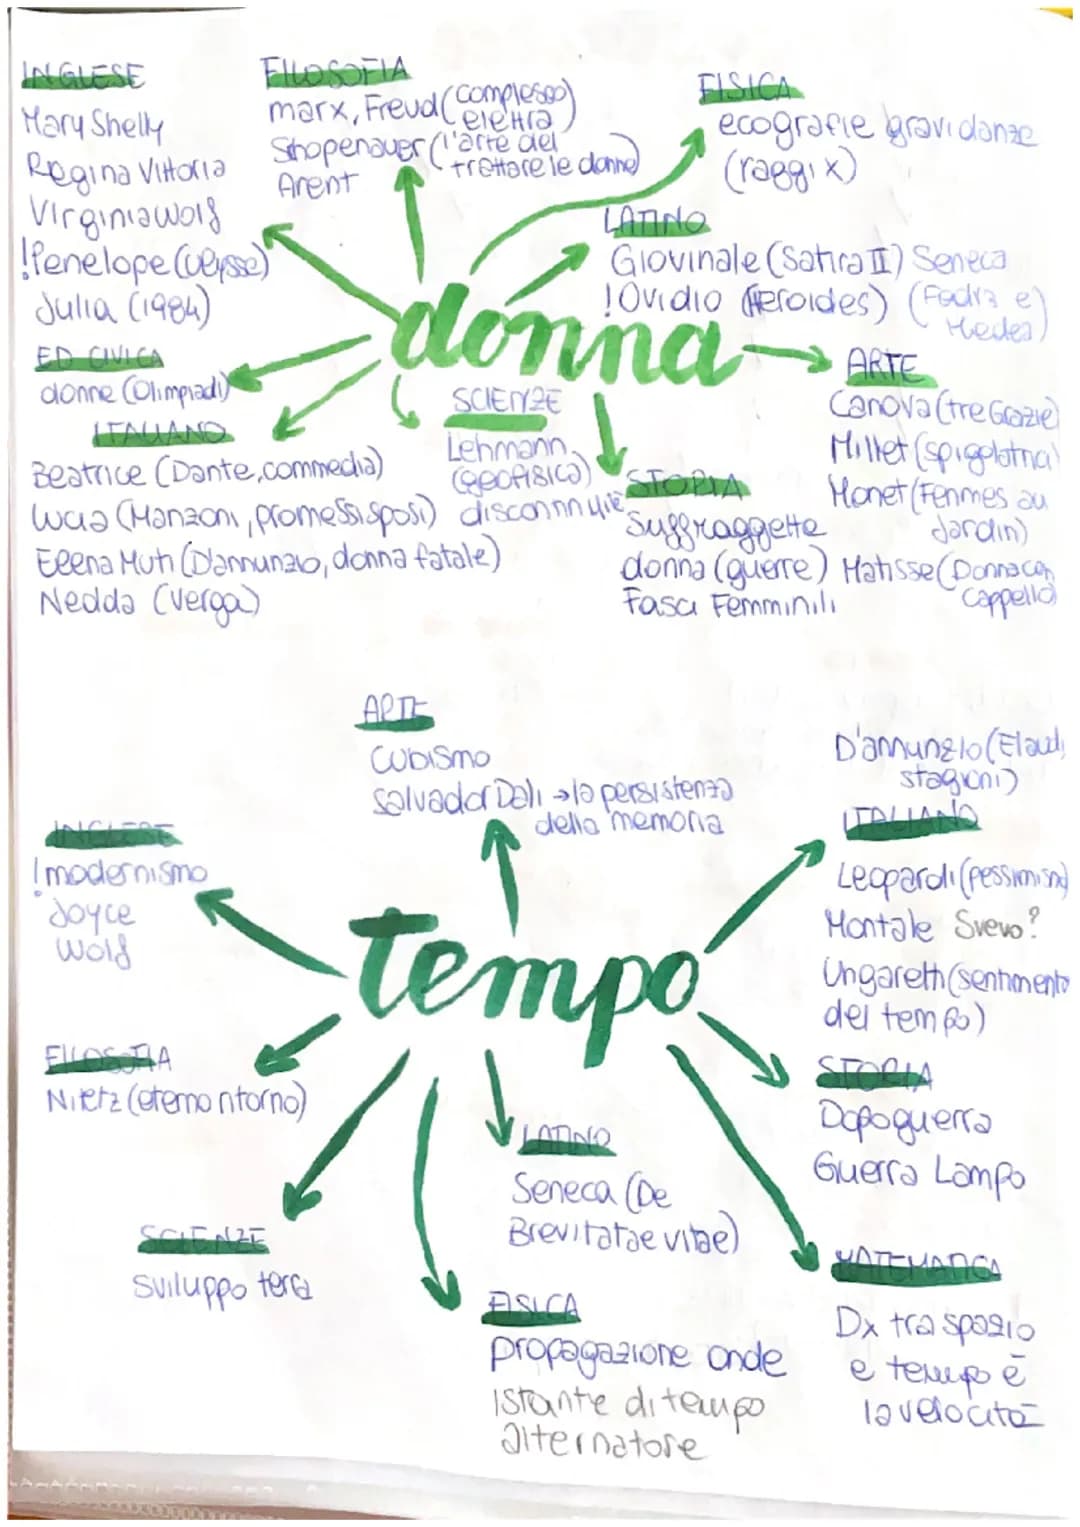 INGLESE
Mary Shelly
Regina Vittoria
Virginia Wolf
!Penelope (Ulysse)
Julia (1984)
FILOSOFIA
marx, Freud (complesso elettra)
Shopenauer (l'arte del trattare le donne)
Arent
FISICA
ecografie gravidanze
(raggi x)
LATINO
Giovinale (Satira II) Seneca
!Ovidio (Heroides) (Fedra e Medea)
donna
ED CIVICA
donne (Olimpiadi)
ITALIANO
Beatrice (Dante, commedia)
Lucia (Manzoni, promessi sposi)
Elena Muti (D'annunzio, donna fatale)
Nedda (Verga)
SCIENZE
Lehmann
(geofisica)
STORIA
Suffraggette
donna (guerre)
Fasci Femminili
ARTE
Canova (tre Grazie)
Millet (spigolatrici)
Monet (Femmes au
Jardin)
Matisse (Donna con
cappello)
ARTE
Cubismo
Salvador Dalì → la persistenza
della memoria
INGLESE
!modernismo
Joyce
Wolf
D'annunzio (Elaudi,
stagioni)
ITALIANO
Leopardi (pessimismo)
Montale Svevo?
Ungaretti (sentimento
del tempo)
tempo
FILOSOFIA
Nietz (eterno ritorno)
STORIA
Dopoguerra
Guerra Lampo
LATINO
Seneca (De
Brevitatae vitae)
SCIENZE
Sviluppo terra
FISICA
propagazione onde
istante di tempo
alternatore
MATEMATICA
Dx tra spazio
e tempo è
la velocità